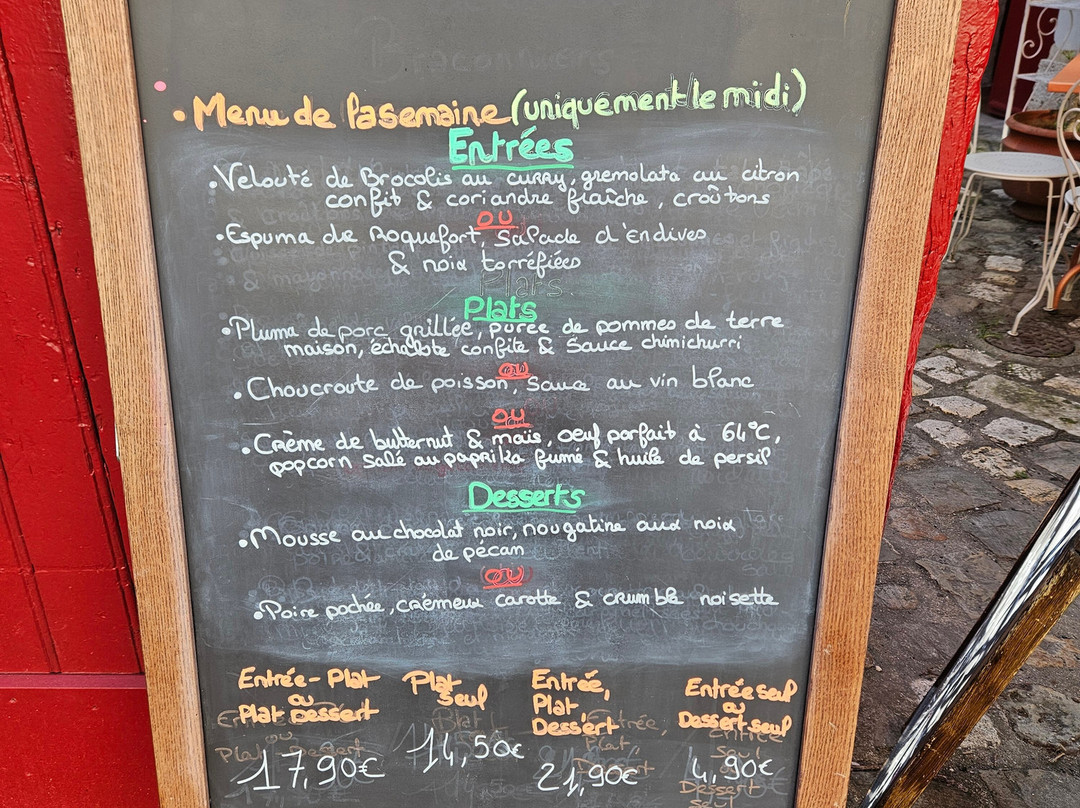 Braconniers
• Menu de la semaine (uniquement le midi)
Entrées
• Velouté de Brocolis au curry, gremolata au citron
confit & coriandre fraîche, croûtons
OU
• Espuma de Roquefort, Salade d'Endives
& noix torréfiées
Plats
Plats
• Pluma de porc grillée, purée de pommes de terre
maison, échalote confite & Sauce chimichurri
OU
• Choucroute de poisson, Sauce au vin blanc
OU
• Crème de butternut & maïs, oeuf parfait à 64°C,
popcorn Salé au paprika fumé & huile de persil
Desserts
• Mousse au chocolat noir, nougatine aux noix
de pécan
OU
• Poire pochée, crémeux carotte & crumble noisette
Entrée-Plat
ou
Plat Dessert
17,90€
Plat
Seul
14,50€
Entrée,
Plat
Dessert
21,90€
Entrée seul
ou
Dessert seul
4,90€